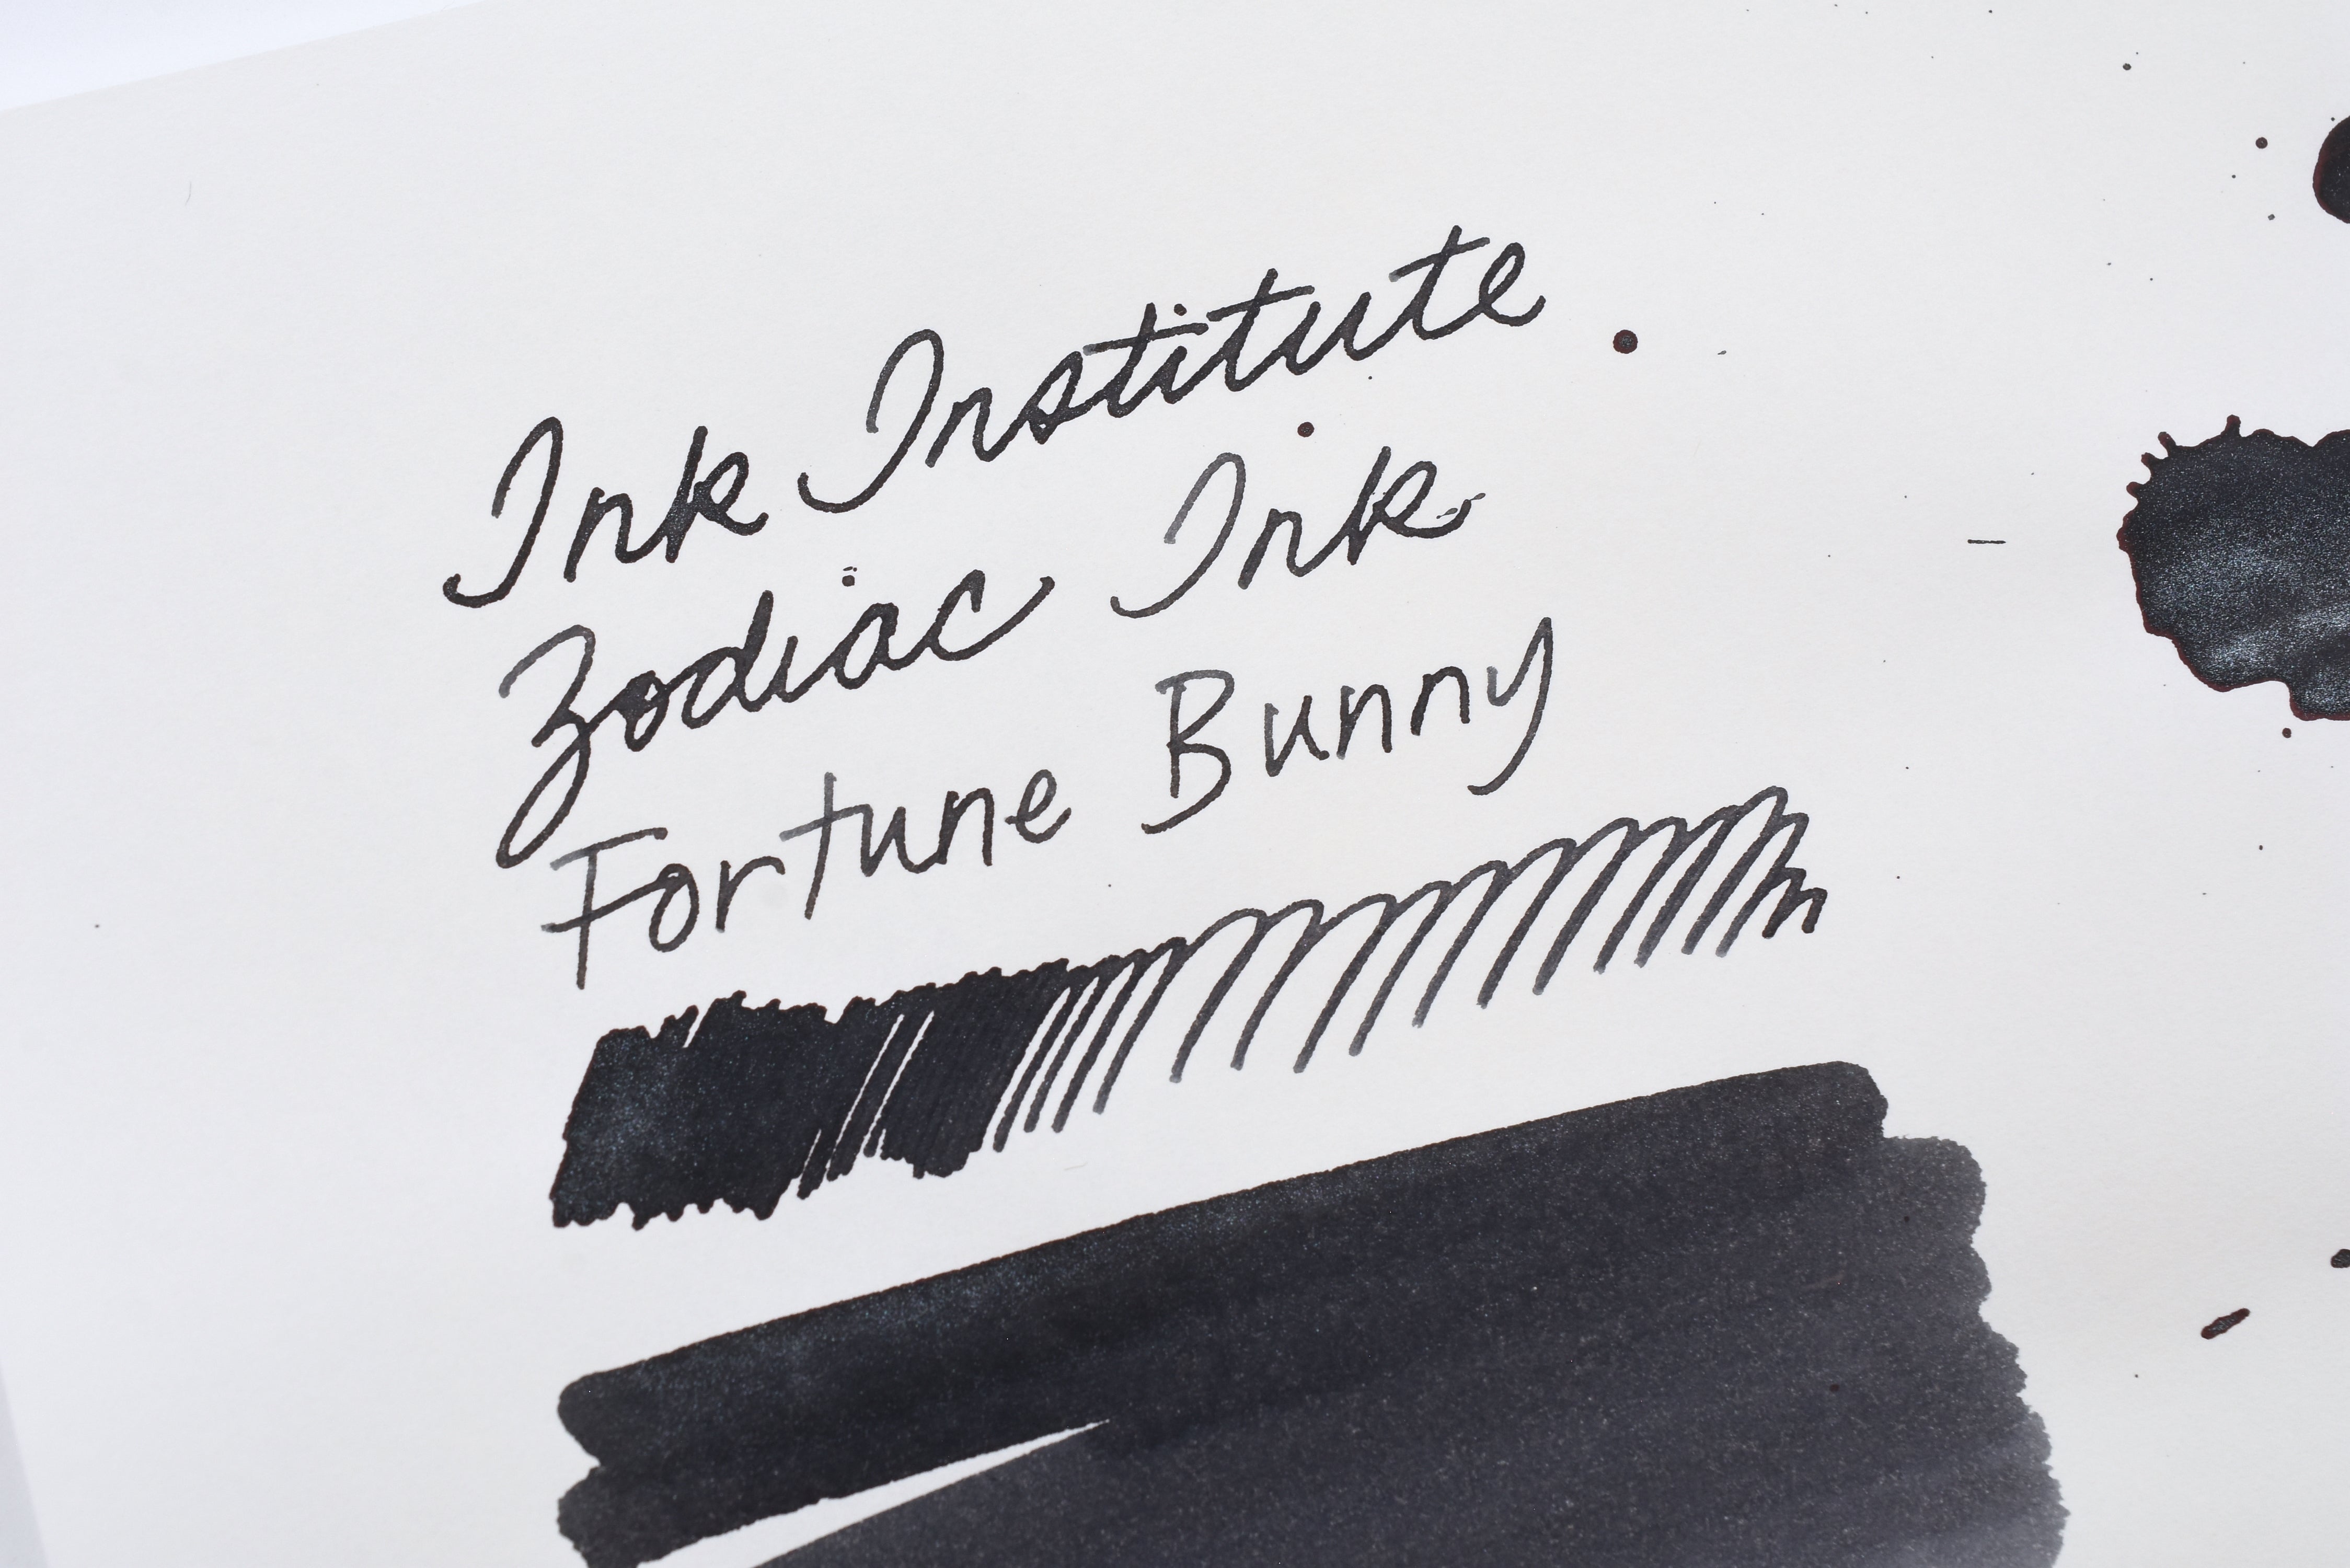 Ink Institute
Zodiac Ink
Fortune Bunny